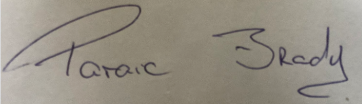 Paraic Brady